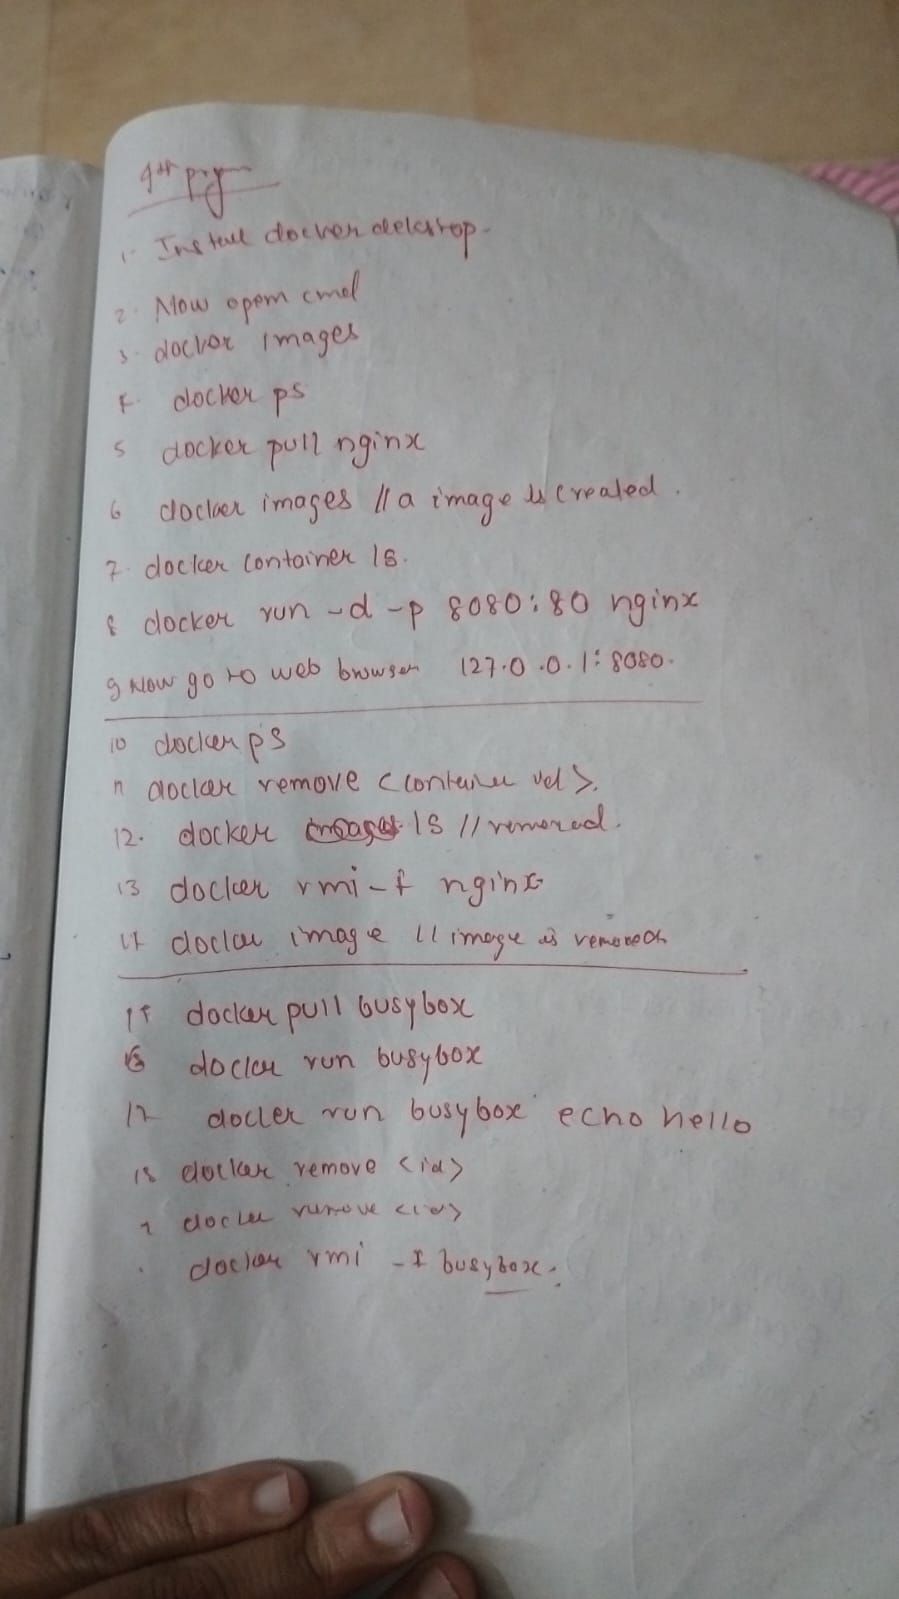 9th prgm
1. Install docker dekstop.
2. Now open cmd
3. docker images
4. docker ps
5 docker pull nginx
6 docker images // a image is created.
7. docker container ls.
8 docker run -d -p 8080:80 nginx
9 Now go to web browser 127.0.0.1:8080.
10 docker ps
11 docker remove <container id>.
12. docker ls // removed.
13 docker rmi -f nginx
14 docker image // image is removed
15 docker pull busybox
16 docker run busybox
17 docker run busybox echo hello
18 docker remove <id>
docker remove <id>
docker rmi -f busybox.